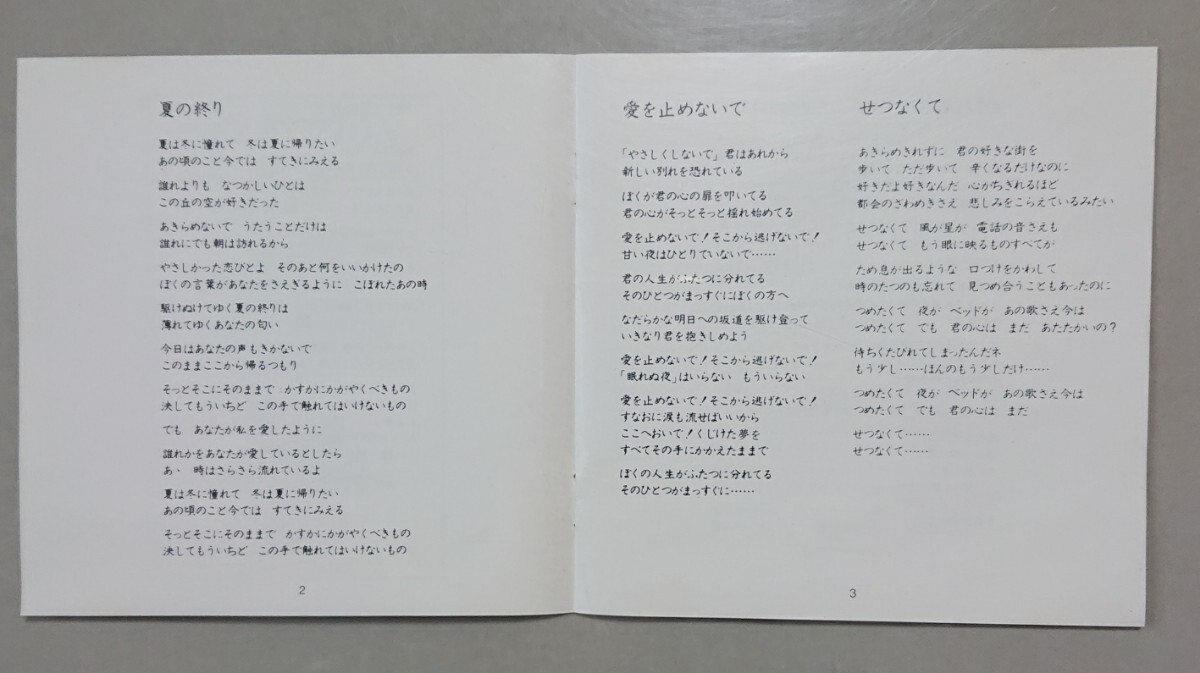 夏の終り
夏は冬に憧れて　冬は夏に帰りたい
あの頃のこと今では　すてきにみえる
誰れよりも　なつかしいひとは
この丘の空が好きだった
あきらめないで　うたうことだけは
誰れにでも朝は訪れるから
やさしかった恋びとよ　そのあと何をいいかけたの
ぼくの言葉があなたをさえぎるように　こぼれたあの時
駆けぬけてゆく夏の終りは
薄れてゆくあなたの匂い
今日はあなたの声もきかないで
このままここから帰るつもり
そっとそこにそのままで　かすかにかがやくべきもの
決してもういちど　この手で触れてはいけないもの
でも　あなたが私を愛したように
誰れかをあなたが愛しているとしたら
あゝ　時はさらさら流れているよ
夏は冬に憧れて　冬は夏に帰りたい
あの頃のこと今では　すてきにみえる
そっとそこにそのままで　かすかにかがやくべきもの
決してもういちど　この手で触れてはいけないもの
2
愛を止めないで
「やさしくしないで」君はあれから
新しい別れを恐れている
ぼくが君の心の扉を叩いてる
君の心がそっとそっと揺れ始めてる
愛を止めないで！そこから逃げないで！
甘い夜はひとりでいないで……
君の人生がふたつに分れてる
そのひとつがまっすぐにぼくの方へ
なだらかな明日への坂道を駆け登って
いきなり君を抱きしめよう
愛を止めないで！そこから逃げないで！
「眠れぬ夜」はいらない　もういらない
愛を止めないで！そこから逃げないで！
すなおに涙も流せばいいから
ここへおいで！くじけた夢を
すべてその手にかかえたままで
ぼくの人生がふたつに分れてる
そのひとつがまっすぐに……
せつなくて
あきらめきれずに　君の好きな街を
歩いて　ただ歩いて　辛くなるだけなのに
好きだよ好きなんだ　心がちぎれるほど
都会のざわめきさえ　悲しみをこらえているみたい
せつなくて　風が星が　電話の音さえも
せつなくて　もう眼に映るものすべてが
ため息が出るような　口づけをかわして
時のたつのも忘れて　見つめ合うこともあったのに
つめたくて　夜が　ベッドが　あの歌さえ今は
つめたくて　でも　君の心は　まだ　あたたかいの？
待ちくたびれてしまったんだネ
もう少し……ほんのもう少しだけ……
つめたくて　夜が　ベッドが　あの歌さえ今は
つめたくて　でも　君の心は　まだ
せつなくて……
せつなくて……
3